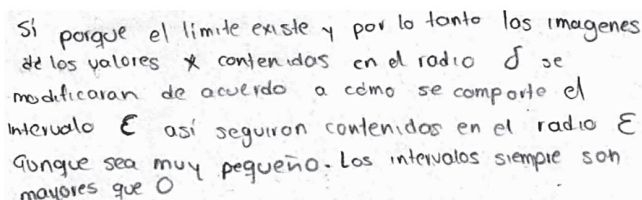 Sí porque el límite existe y por lo tanto las imagenes
de los valores x contenidas en el radio δ se
modificaran de acuerdo a cómo se comporte el
intervalo ε así seguiron contenidos en el radio ε
aunque sea muy pequeño. Los intervalos siempre son
mayores que 0